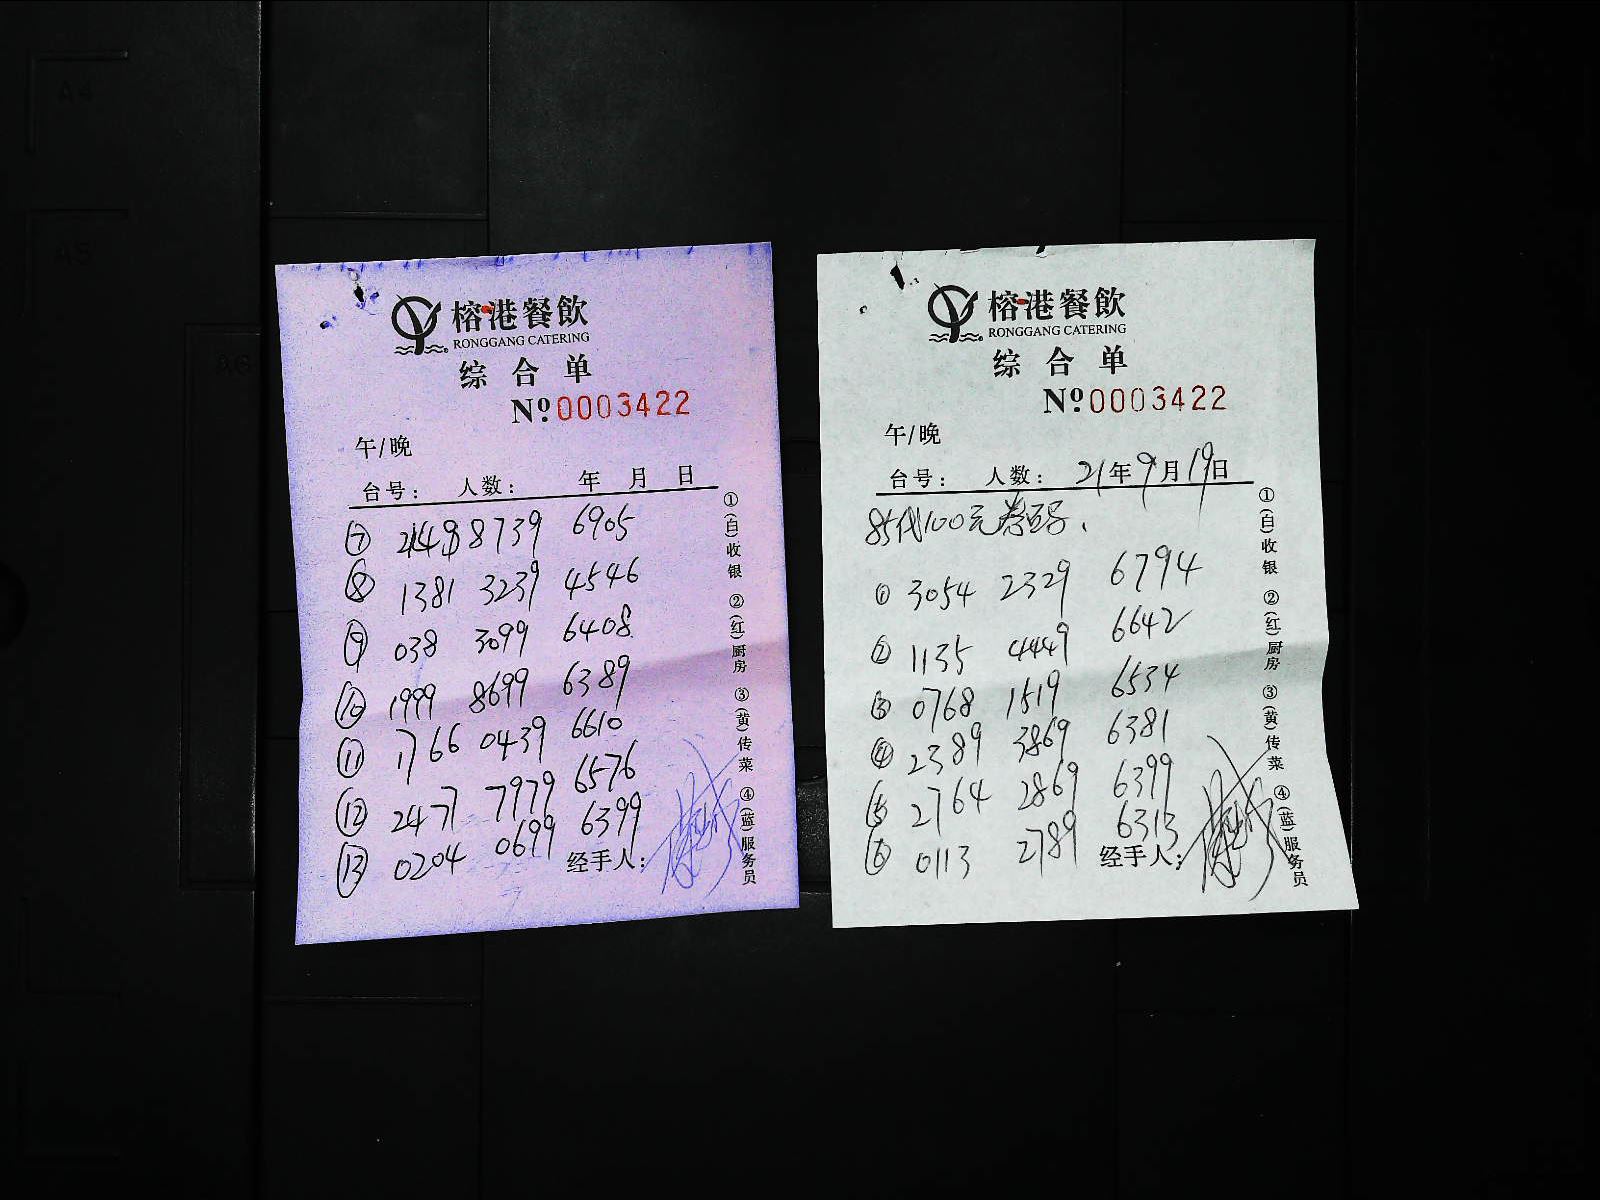 榕港餐飲
RONGGANG CATERING
综合单
Nº0003422
午/晚
台号： 人数： 年 月 日
⑦ 8739 6905
⑧ 1381 3239 4546
⑨ 038 3099 6408
⑩ 1999 8699 6389
⑪ 1766 0439 6610
⑫ 2477 7979 6576
⑬ 0204 0699 6399
经手人：
①(白)收银 ②(红)厨房 ③(黄)传菜 ④(蓝)服务员
榕港餐飲
RONGGANG CATERING
综合单
Nº0003422
午/晚
台号： 人数： 21年9月19日
85代100元券号.
① 3054 2329 6794
② 1135 4449 6642
③ 0768 1519 6534
④ 2389 3869 6381
⑤ 2764 2869 6399
⑥ 0113 2789 6313
经手人：
①(白)收银 ②(红)厨房 ③(黄)传菜 ④(蓝)服务员